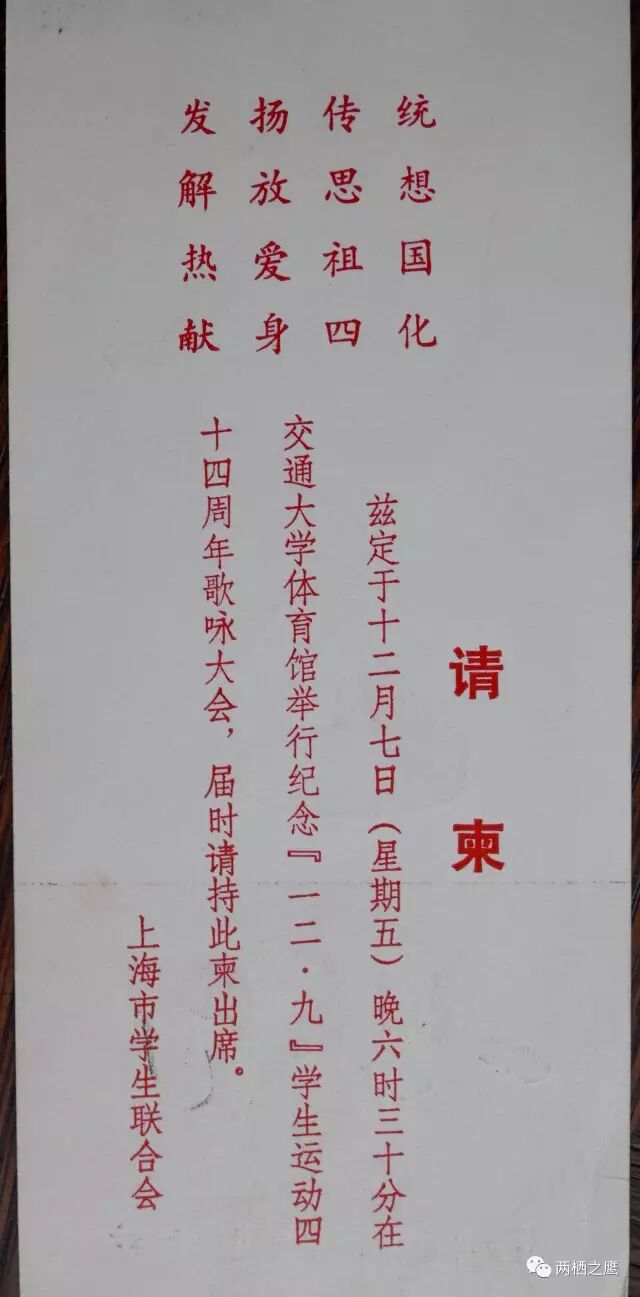 发扬传统
解放思想
热爱祖国
献身四化
请柬
兹定于十二月七日（星期五）晚六时三十分在
交通大学体育馆举行纪念『一二·九』学生运动四
十四周年歌咏大会，届时请持此柬出席。
上海市学生联合会
两栖之鹰